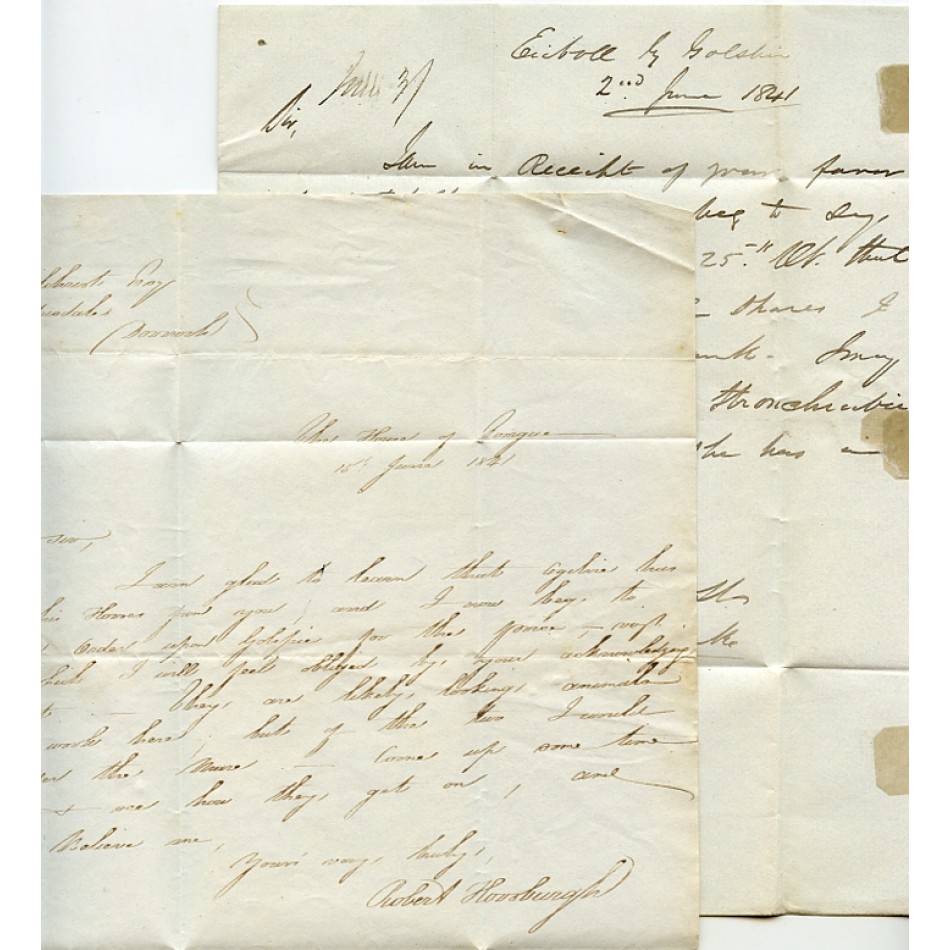 Eriboll by Golspie
2nd June 1841
Sir,
I am in Receipt of your favor
beg to say,
25th Ult. that
Shares I
I may
Stronchrubie
she has
Dornoch
The House of Tongue
15th June 1841
Sir,
I am glad to learn that Ogilvie has
Horses from you, and I now beg to
Order upon Golspie for the price,
I will feel obliged by your acknowledging
They are likely looking animals
work here; but of the two I would
the Mare — Come up some time
see how they get on, and
Believe me,
Yours very truly,
Robert Horsburgh